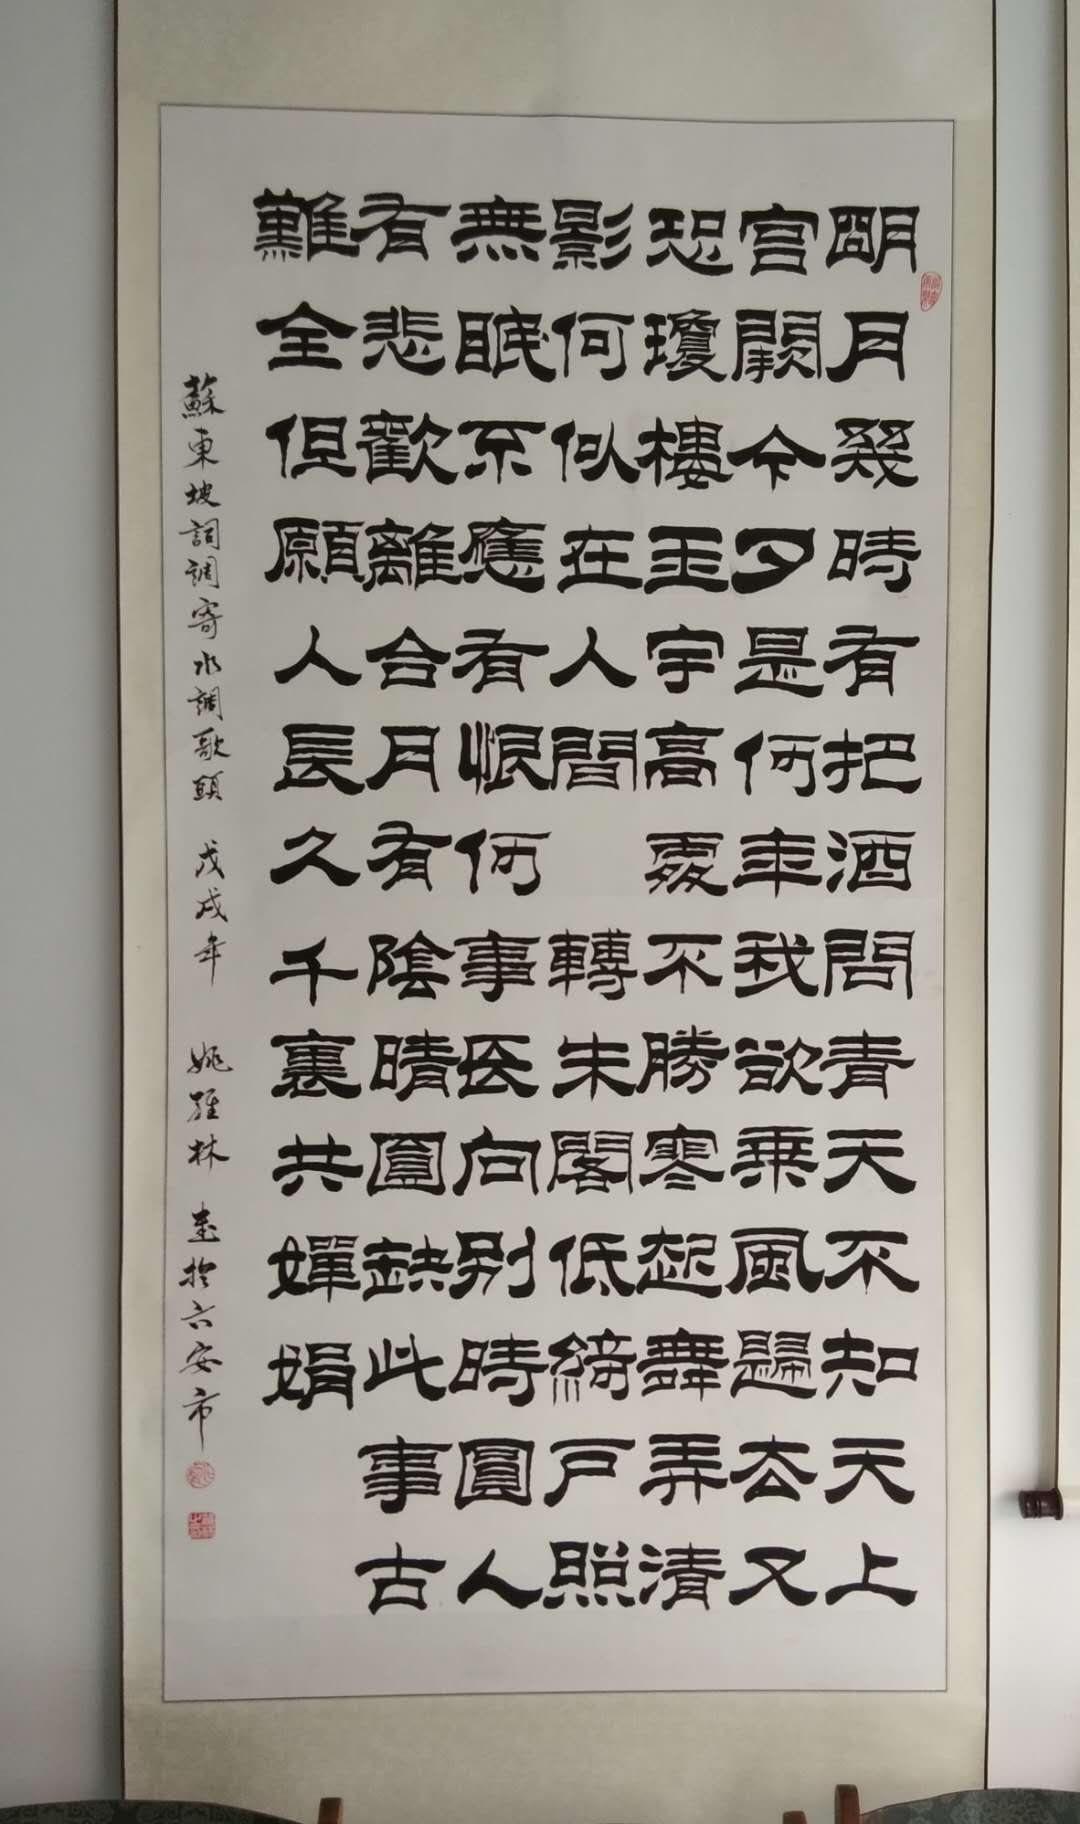 明月幾時有把酒問青天不知天上
宮闕今夕是何年我欲乘風歸去又
恐瓊樓玉宇高處不勝寒起舞弄清
影何似在人間 轉朱閣低綺戶照
無眠不應有恨何事長向別時圓人
有悲歡離合月有陰晴圓缺此事古
難全但願人長久千裏共嬋娟
蘇東坡詞調寄水調歌頭 戊戌年 姚維林 書於六安市